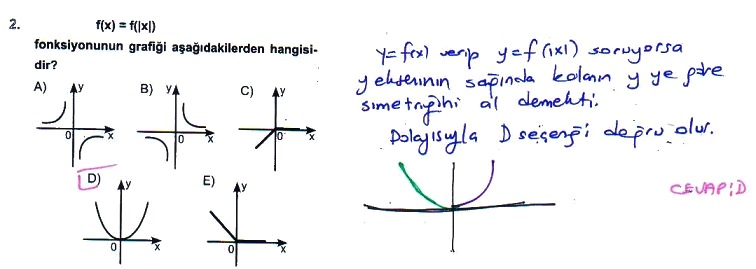 2.
f(x) = f(|x|)
fonksiyonunun grafiği aşağıdakilerden hangisi-
dir?
A) y 0 x
B) y 0 x
C) y 0 x
D) y 0 x
E) y 0 x
y=f(x) verip y=f(|x|) soruyorsa
y ekseninin sağında kalanın y ye göre
simetriğini al demekti.
Dolayısıyla D seçeneği doğru olur.
CEVAP: D